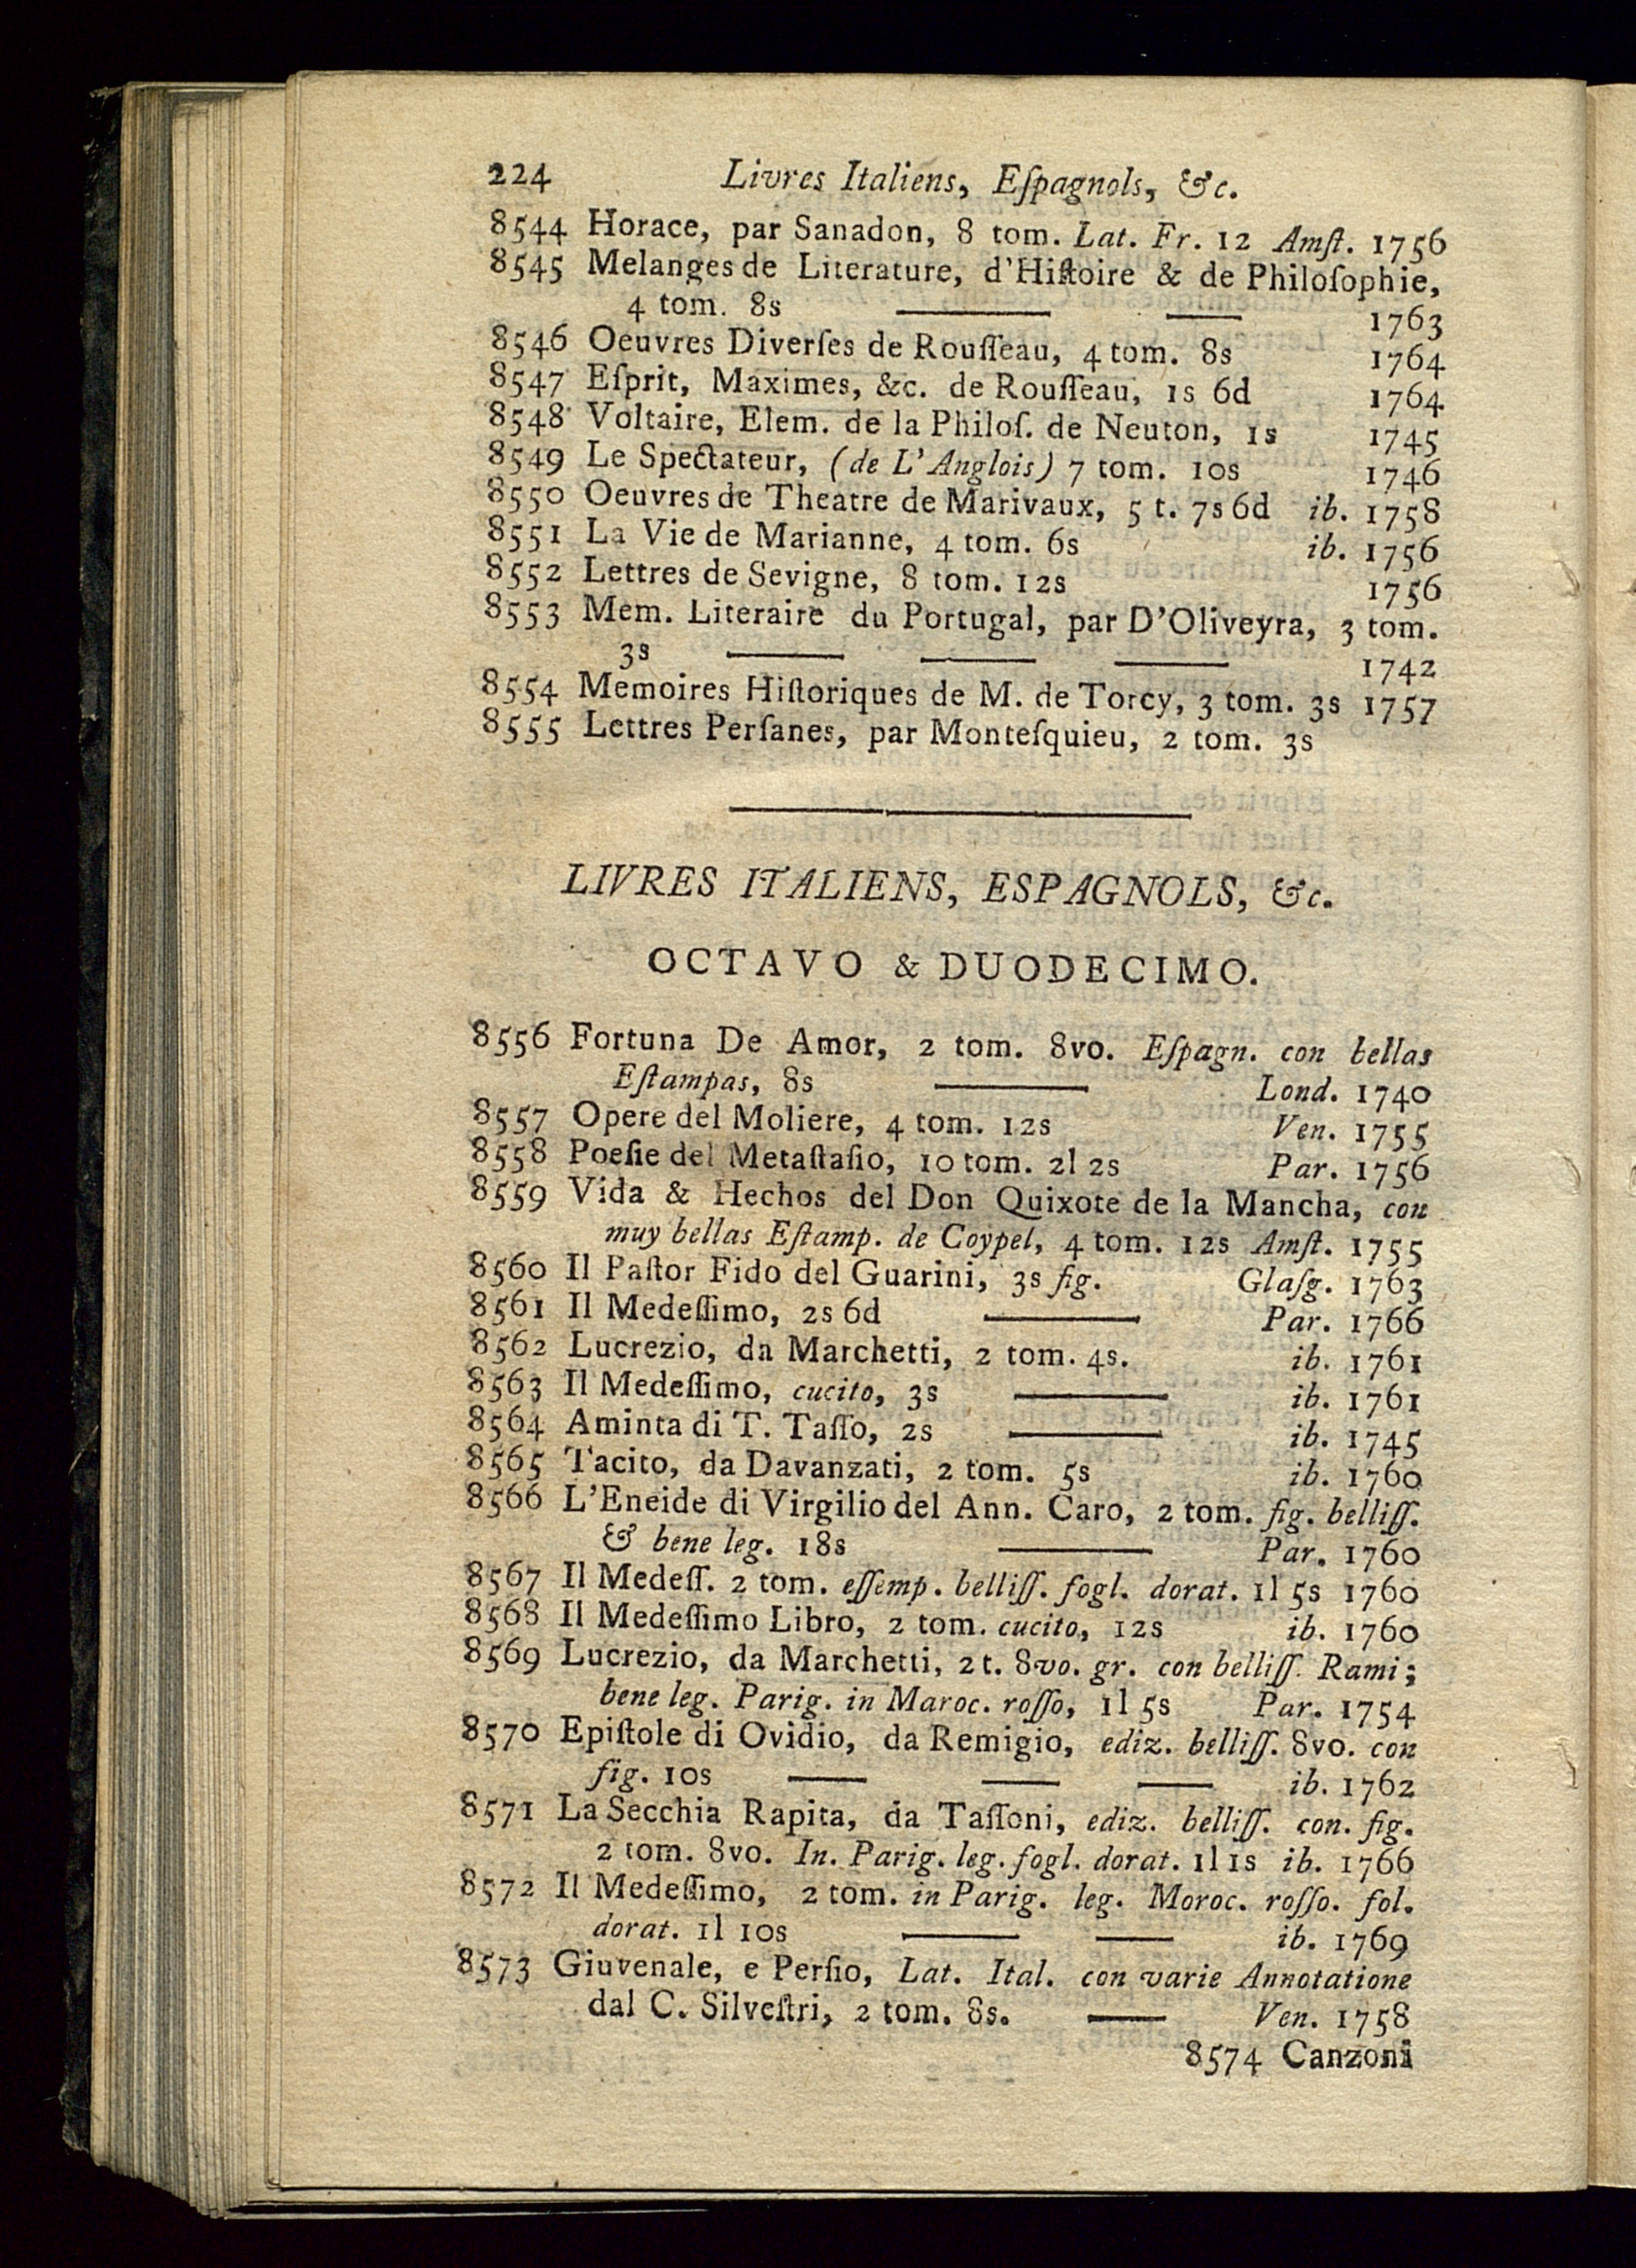 224 Livres Italiens, Eſpagnols, &c.
8544 Horace, par Sanadon, 8 tom. Lat. Fr. 12 Amſt. 1756
8545 Melanges de Literature, d'Hiſtoire & de Philoſophie,
4 tom. 8s —— —— 1763
8546 Oeuvres Diverſes de Rouſſeau, 4 tom. 8s 1764
8547 Eſprit, Maximes, &c. de Rouſſeau, 1s 6d 1764
8548 Voltaire, Elem. de la Philoſ. de Neuton, 1s 1745
8549 Le Spectateur, (de L'Anglois) 7 tom. 10s 1746
8550 Oeuvres de Theatre de Marivaux, 5 t. 7s 6d ib. 1758
8551 La Vie de Marianne, 4 tom. 6s ib. 1756
8552 Lettres de Sevigne, 8 tom. 12s 1756
8553 Mem. Literaire du Portugal, par D'Oliveyra, 3 tom.
3s —— —— —— 1742
8554 Memoires Hiſtoriques de M. de Torcy, 3 tom. 3s 1757
8555 Lettres Perſanes, par Monteſquieu, 2 tom. 3s
LIVRES ITALIENS, ESPAGNOLS, &c.
OCTAVO & DUODECIMO.
8556 Fortuna De Amor, 2 tom. 8vo. Eſpagn. con bellas
Eſtampas, 8s —— Lond. 1740
8557 Opere del Moliere, 4 tom. 12s Ven. 1755
8558 Poeſie del Metaſtaſio, 10 tom. 2l 2s Par. 1756
8559 Vida & Hechos del Don Quixote de la Mancha, con
muy bellas Eſtamp. de Coypel, 4 tom. 12s Amſt. 1755
8560 Il Paſtor Fido del Guarini, 3s fig. Glaſg. 1763
8561 Il Medeſſimo, 2s 6d —— Par. 1766
8562 Lucrezio, da Marchetti, 2 tom. 4s. ib. 1761
8563 Il Medeſſimo, cucito, 3s —— ib. 1761
8564 Aminta di T. Taſſo, 2s —— ib. 1745
8565 Tacito, da Davanzati, 2 tom. 5s ib. 1760
8566 L'Eneide di Virgilio del Ann. Caro, 2 tom. fig. belliſſ.
& bene leg. 18s —— Par. 1760
8567 Il Medeſſ. 2 tom. eſſemp. belliſſ. fogl. dorat. 1l 5s 1760
8568 Il Medeſſimo Libro, 2 tom. cucito, 12s ib. 1760
8569 Lucrezio, da Marchetti, 2 t. 8vo. gr. con belliſſ. Rami;
bene leg. Parig. in Maroc. roſſo, 1l 5s Par. 1754
8570 Epiſtole di Ovidio, da Remigio, ediz. belliſſ. 8vo. con
fig. 10s —— —— —— ib. 1762
8571 La Secchia Rapita, da Taſſoni, ediz. belliſſ. con. fig.
2 tom. 8vo. In. Parig. leg. fogl. dorat. 1l 1s ib. 1766
8572 Il Medeſſimo, 2 tom. in Parig. leg. Moroc. roſſo. fol.
dorat. 1l 10s —— —— ib. 1769
8573 Giuvenale, e Perſio, Lat. Ital. con varie Annotatione
dal C. Silveſtri, 2 tom. 8s. —— Ven. 1758
8574 Canzoni